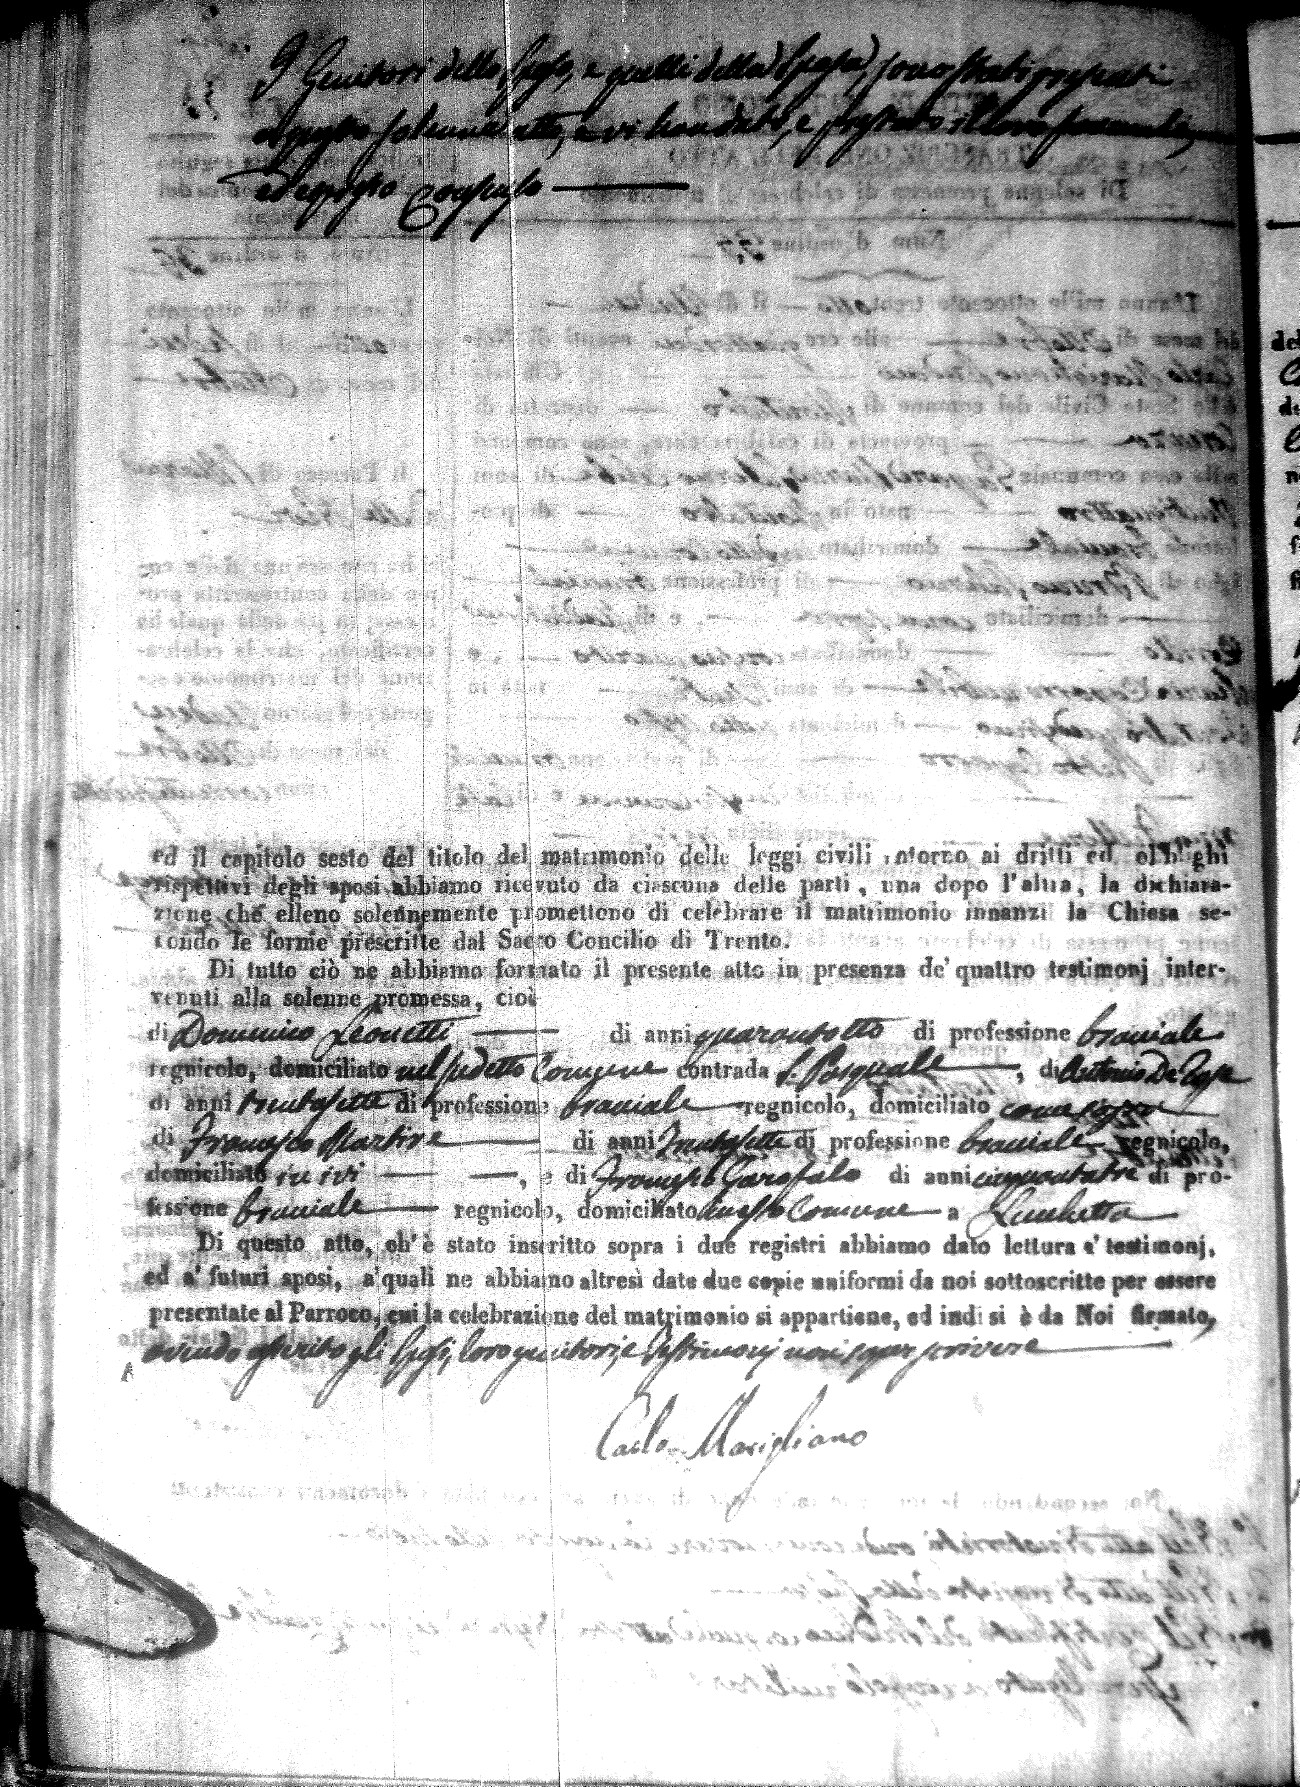 I Genitori dello Sposo, e quelli della Sposa, sono stati presenti
a questo solenne atto, e vi han dato, e prestato il loro
ed espresso Consenso
ed il capitolo sesto del titolo del matrimonio delle leggi civili intorno ai dritti ed obblighi
rispettivi degli sposi abbiamo ricevuto da ciascuna delle parti, una dopo l'altra, la dichiara-
zione che elleno solennemente promettono di celebrare il matrimonio innanzi la Chiesa se-
condo le forme prescritte dal Sacro Concilio di Trento.
Di tutto ciò ne abbiamo formato il presente atto in presenza de' quattro testimonj inter-
venuti alla solenne promessa, cioè
di Domenico Leonetti di anni quarantotto di professione bracciale
regnicolo, domiciliato nel sudetto Comune contrada S. Pasquale, di Antonio De
di anni trentasette di professione bracciale regnicolo, domiciliato come sopra
di Francesco Martire di anni trentasette di professione bracciale regnicolo,
domiciliato ivi, e di Francesco Garofalo di anni cinquantatre di pro-
fessione bracciale regnicolo, domiciliato in questo Comune a
Di questo atto, ch'è stato inscritto sopra i due registri abbiamo dato lettura a' testimonj,
ed a' futuri sposi, a' quali ne abbiamo altresì date due copie uniformi da noi sottoscritte per essere
presentate al Parroco, cui la celebrazione del matrimonio si appartiene, ed indi si è da Noi firmato,
avendo asserito gli Sposi, loro genitori, e Testimonj non saper scrivere
Carlo Marigliano